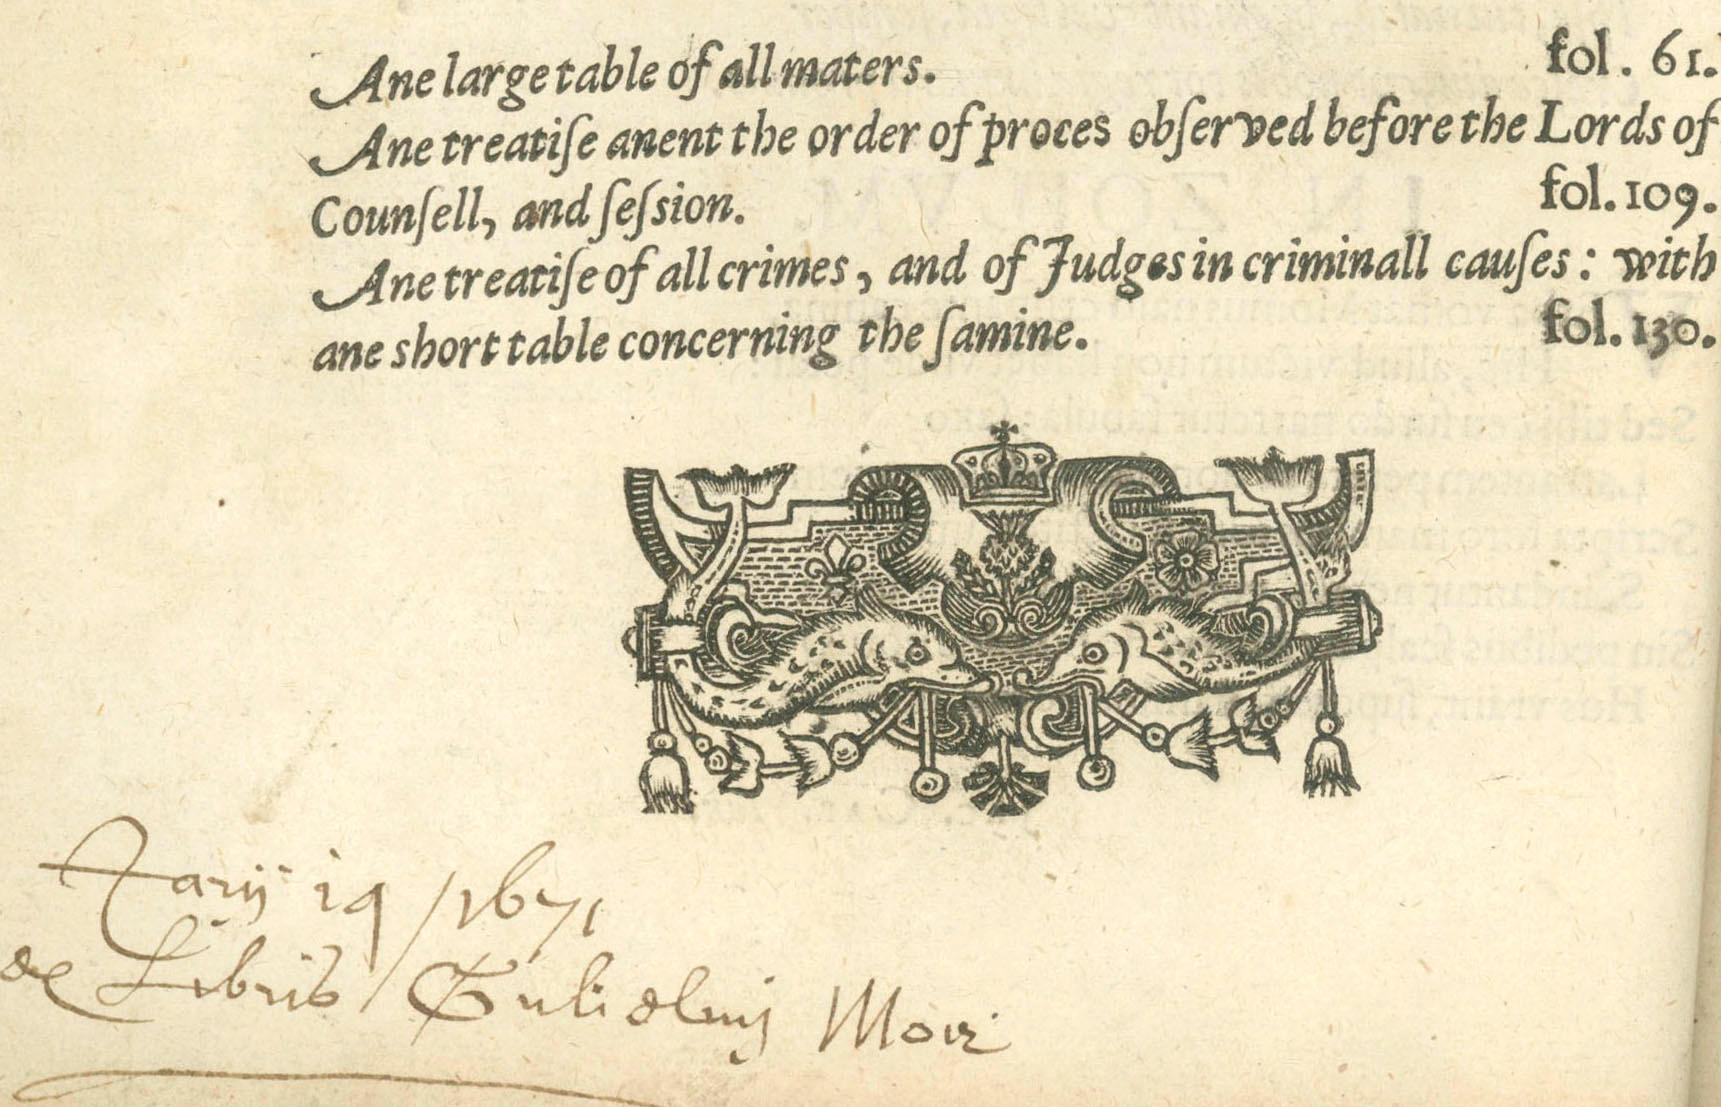 Ane large table of all maters. fol. 61.
Ane treatiſe anent the order of proces obſerved before the Lords of
Counſell, and ſeſsion. fol. 109.
Ane treatiſe of all crimes, and of Judges in criminall cauſes: with
ane short table concerning the ſamine. fol. 130.
19 / 1671
de Libris Gulielmij Moir